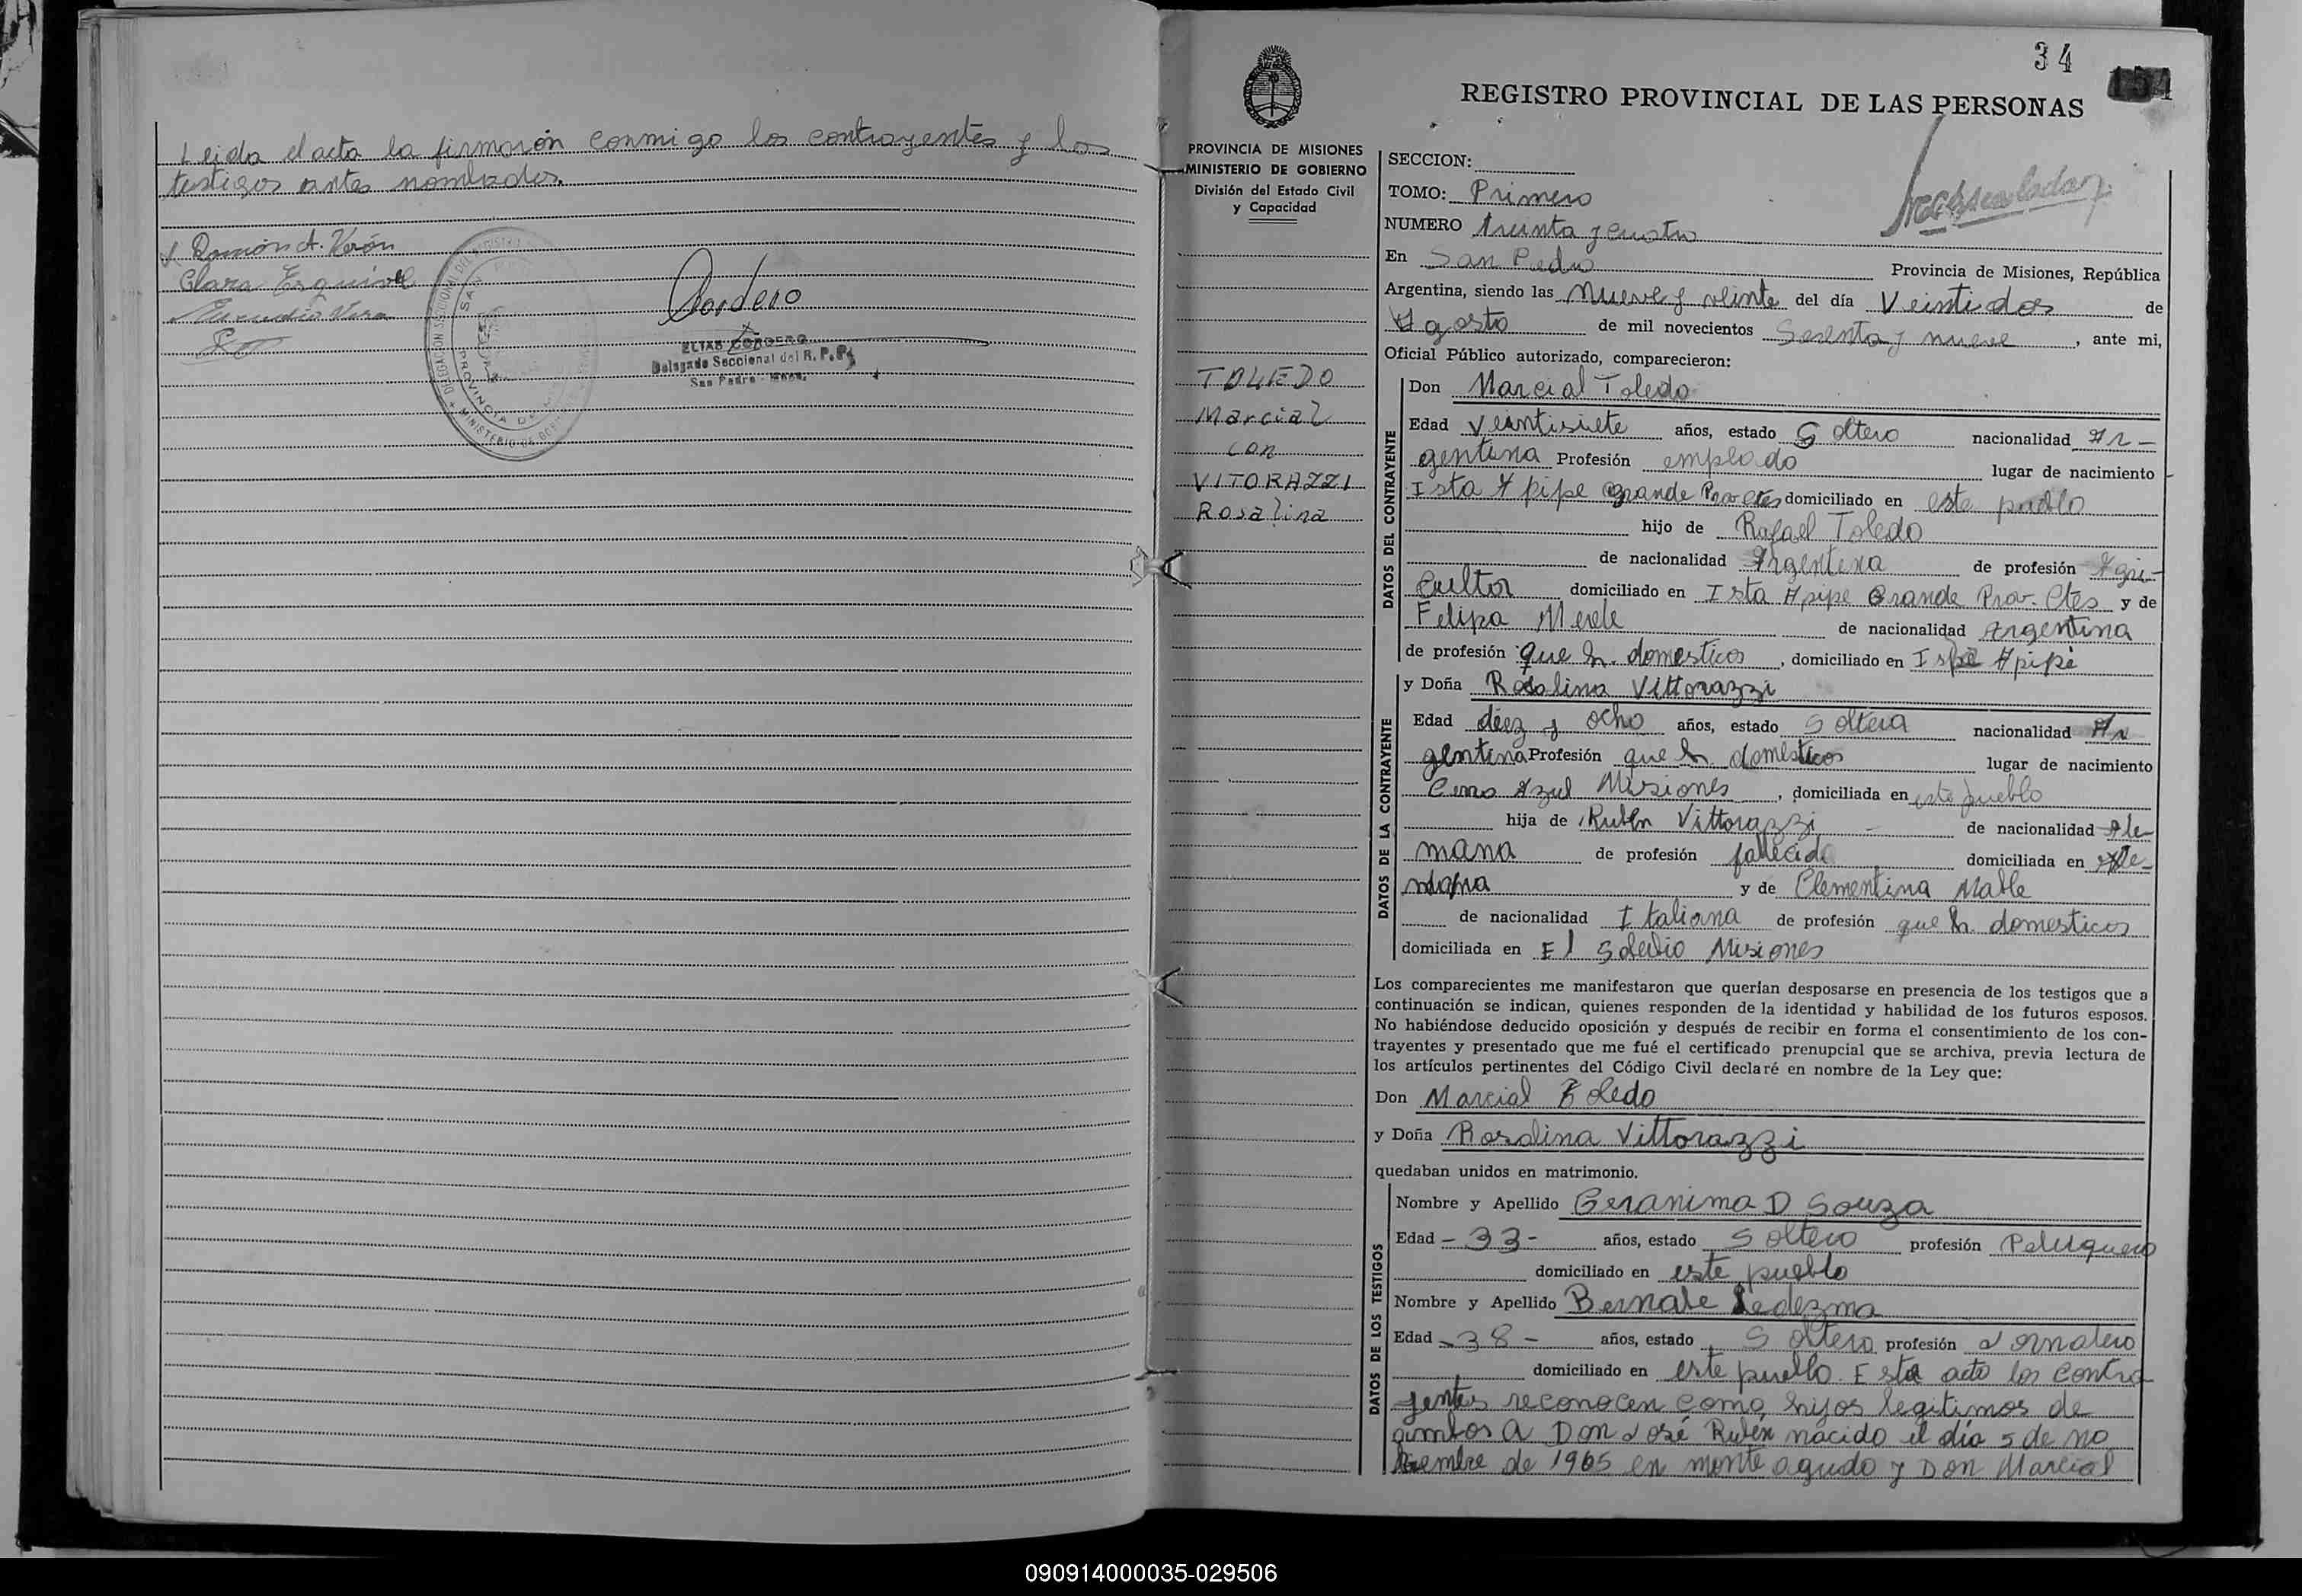 Leida el acta la firmarón conmigo los contrayentes y los
testigos antes nombrados.
Ramón A. Verón
Clara Esquivel
Vera
Cordero
ELIAS CORDERO
Delegado Seccional del R. P. P.
San Pedro - Mnes.
34
154
REGISTRO PROVINCIAL DE LAS PERSONAS
PROVINCIA DE MISIONES
MINISTERIO DE GOBIERNO
División del Estado Civil
y Capacidad
TOLEDO
Marcial
con
VITORAZZI
Rosalina
SECCION:
TOMO: Primero
NUMERO treinta y cuatro
En San Pedro Provincia de Misiones, República
Argentina, siendo las nueve y veinte del día Veintidos de
Agosto de mil novecientos Sesenta y nueve, ante mi,
Oficial Público autorizado, comparecieron:
DATOS DEL CONTRAYENTE
Don Marcial Toledo
Edad Veintisiete años, estado Soltero nacionalidad Ar-
gentina Profesión empleado lugar de nacimiento
Isla Apipe Grande Prov Ctes domiciliado en este pueblo
hijo de Rafael Toledo
de nacionalidad Argentina de profesión Agri-
cultor domiciliado en Isla Apipe Grande Prov. Ctes y de
Felipa Merele de nacionalidad Argentina
de profesión que h. domesticos, domiciliado en Apipé
DATOS DE LA CONTRAYENTE
y Doña Rosalina Vittorazzi
Edad diez y ocho años, estado Soltera nacionalidad Ar
gentina Profesión que h. domesticos lugar de nacimiento
Cerro Azul Misiones, domiciliada en este pueblo
hija de Rubén Vittorazzi de nacionalidad Ale-
mana de profesión fallecido domiciliada en
y de Clementina Malle
de nacionalidad Italiana de profesión que h. domesticos
domiciliada en El Soberbio Misiones
Los comparecientes me manifestaron que querían desposarse en presencia de los testigos que a
continuación se indican, quienes responden de la identidad y habilidad de los futuros esposos.
No habiéndose deducido oposición y después de recibir en forma el consentimiento de los con-
trayentes y presentado que me fué el certificado prenupcial que se archiva, previa lectura de
los artículos pertinentes del Código Civil declaré en nombre de la Ley que:
Don Marcial Toledo
y Doña Rosalina Vittorazzi
quedaban unidos en matrimonio.
DATOS DE LOS TESTIGOS
Nombre y Apellido Geranima D Souza
Edad - 33 - años, estado Soltero profesión Peluquero
domiciliado en este pueblo
Nombre y Apellido Bernabe Ledezma
Edad - 38 - años, estado Soltero profesión Jornalero
domiciliado en este pueblo. Esta acto los contra
yentes reconocen como hijos legitimos de
ambos A Don José Rubén nacido el día 5 de no
biembre de 1965 en monte agudo y Don Marcial
090914000035-029506